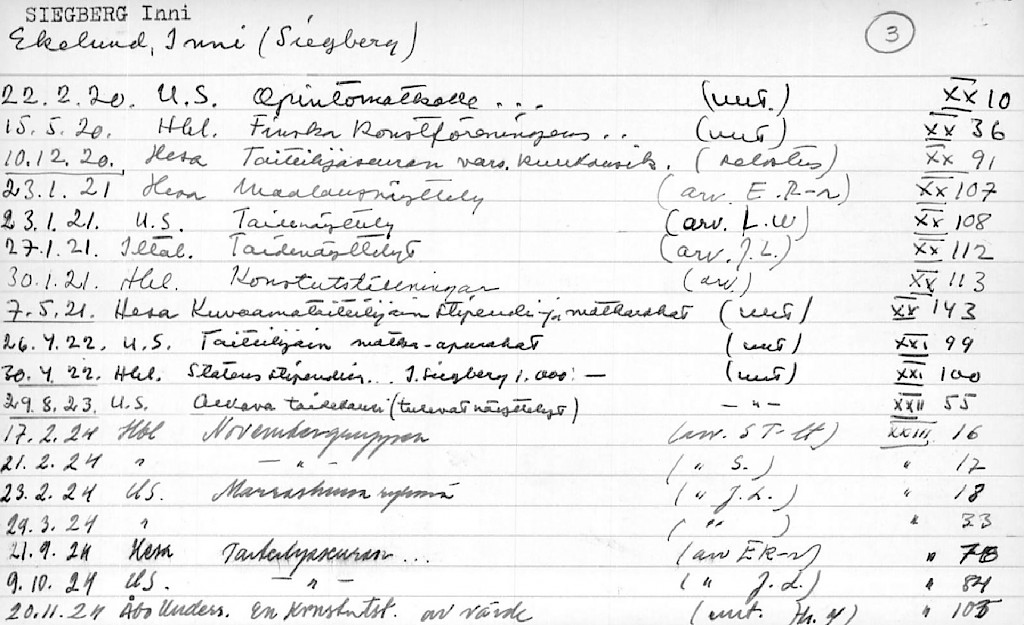 SIEGBERG Inni
Ekelund, Inni (Siegberg) 3
22.2.20. U.S. Opintomatkalle ... (uut.) XX 10
15.5.20. Hbl. Finska Konstföreningens .. (uut) XX 36
10.12.20. Hesa Taiteilijaseuran vars. kuukausik. (selostus) XX 91
23.1.21 Hesa Maalausnäyttely (arv. E. R-r) XX 107
23.1.21. U.S. Taidenäyttely (arv. L.W) XX 108
27.1.21. Iltal. Taidenäyttelyt (arv. J.L.) XX 112
30.1.21. Hbl. Konstutställningar (arv) XX 113
7.5.21. Hesa Kuvaamataiteilijain stipendi- ja matkarahat (uut) XX 143
26.4.22. U.S. Taiteilijain matka-apurahat (uut) XXI 99
30.4.22. Hbl. Statens stipendier... I. Siegberg 1.000:- (uut) XXI 100
29.8.23. U.S. Alkava taidekausi (tulevat näyttelyt) -"- XXII 55
17.2.24 Hbl Novembergruppen (arv. S T-lt) XXIII 16
21.2.24 " -"- (" S.) " 17
23.2.24 US. Marraskuun ryhmä (" J.L.) " 18
29.3.24 " (" ) " 33
21.9.24 Hesa Taiteilijaseuran... (arv E R-r) "
9.10.24 US. -"- (" J.L.) " 84
20.11.24 Åbo Unders. En konstutst. av värde (uut. ) " 105